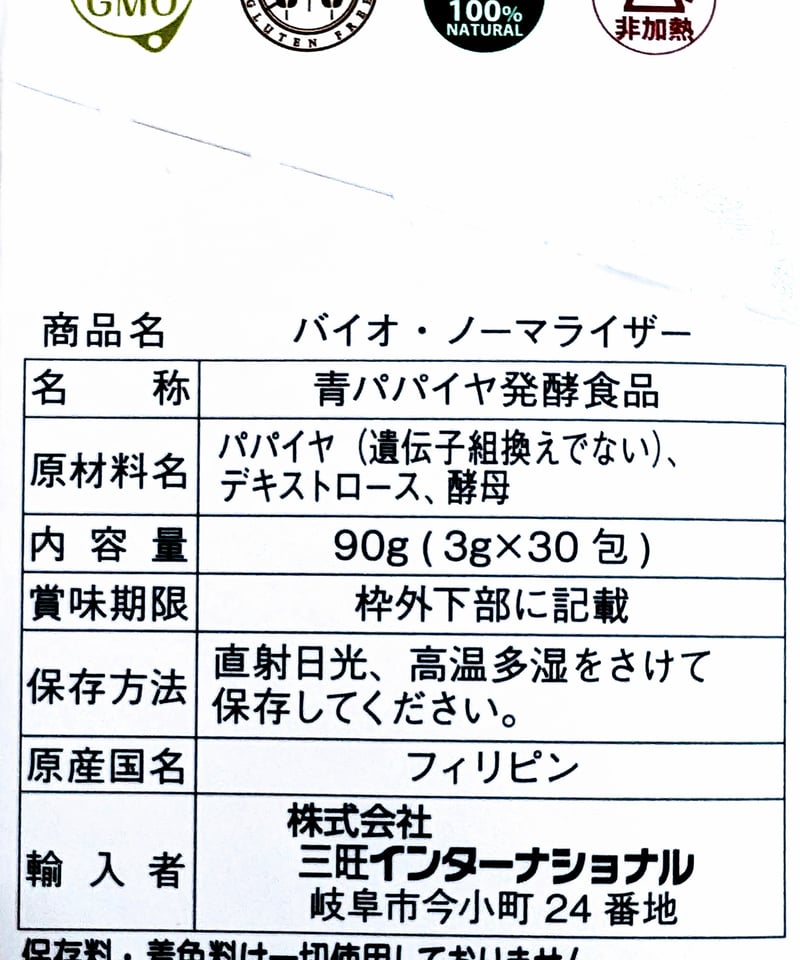 GMO
GLUTEN FREE
100%
NATURAL
非加熱
商品名 バイオ・ノーマライザー
名 称 青パパイヤ発酵食品
原材料名 パパイヤ（遺伝子組換えでない）、
デキストロース、酵母
内容量 90g ( 3g×30 包 )
賞味期限 枠外下部に記載
保存方法 直射日光、高温多湿をさけて
保存してください。
原産国名 フィリピン
輸入者 株式会社
三旺インターナショナル
岐阜市今小町 24 番地
保存料・着色料は一切使用しておりません